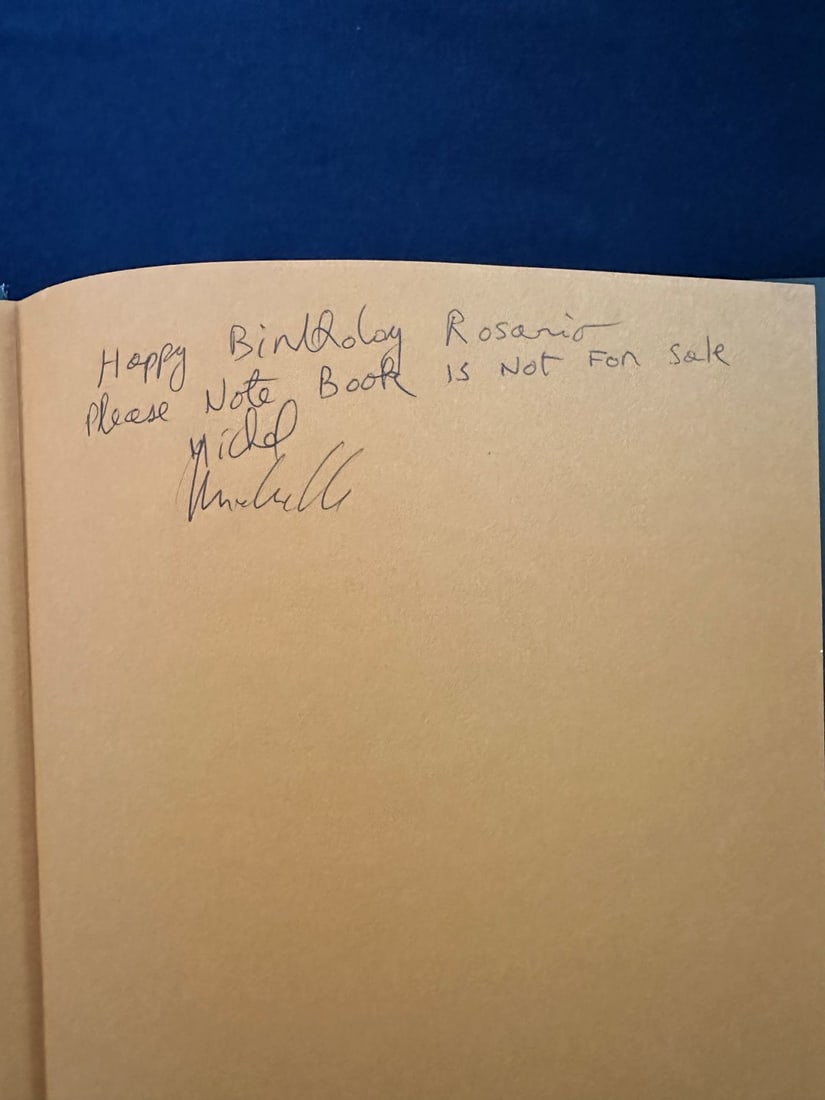 Happy Birthday Rosario
Please Note Book is Not For Sale
Michel